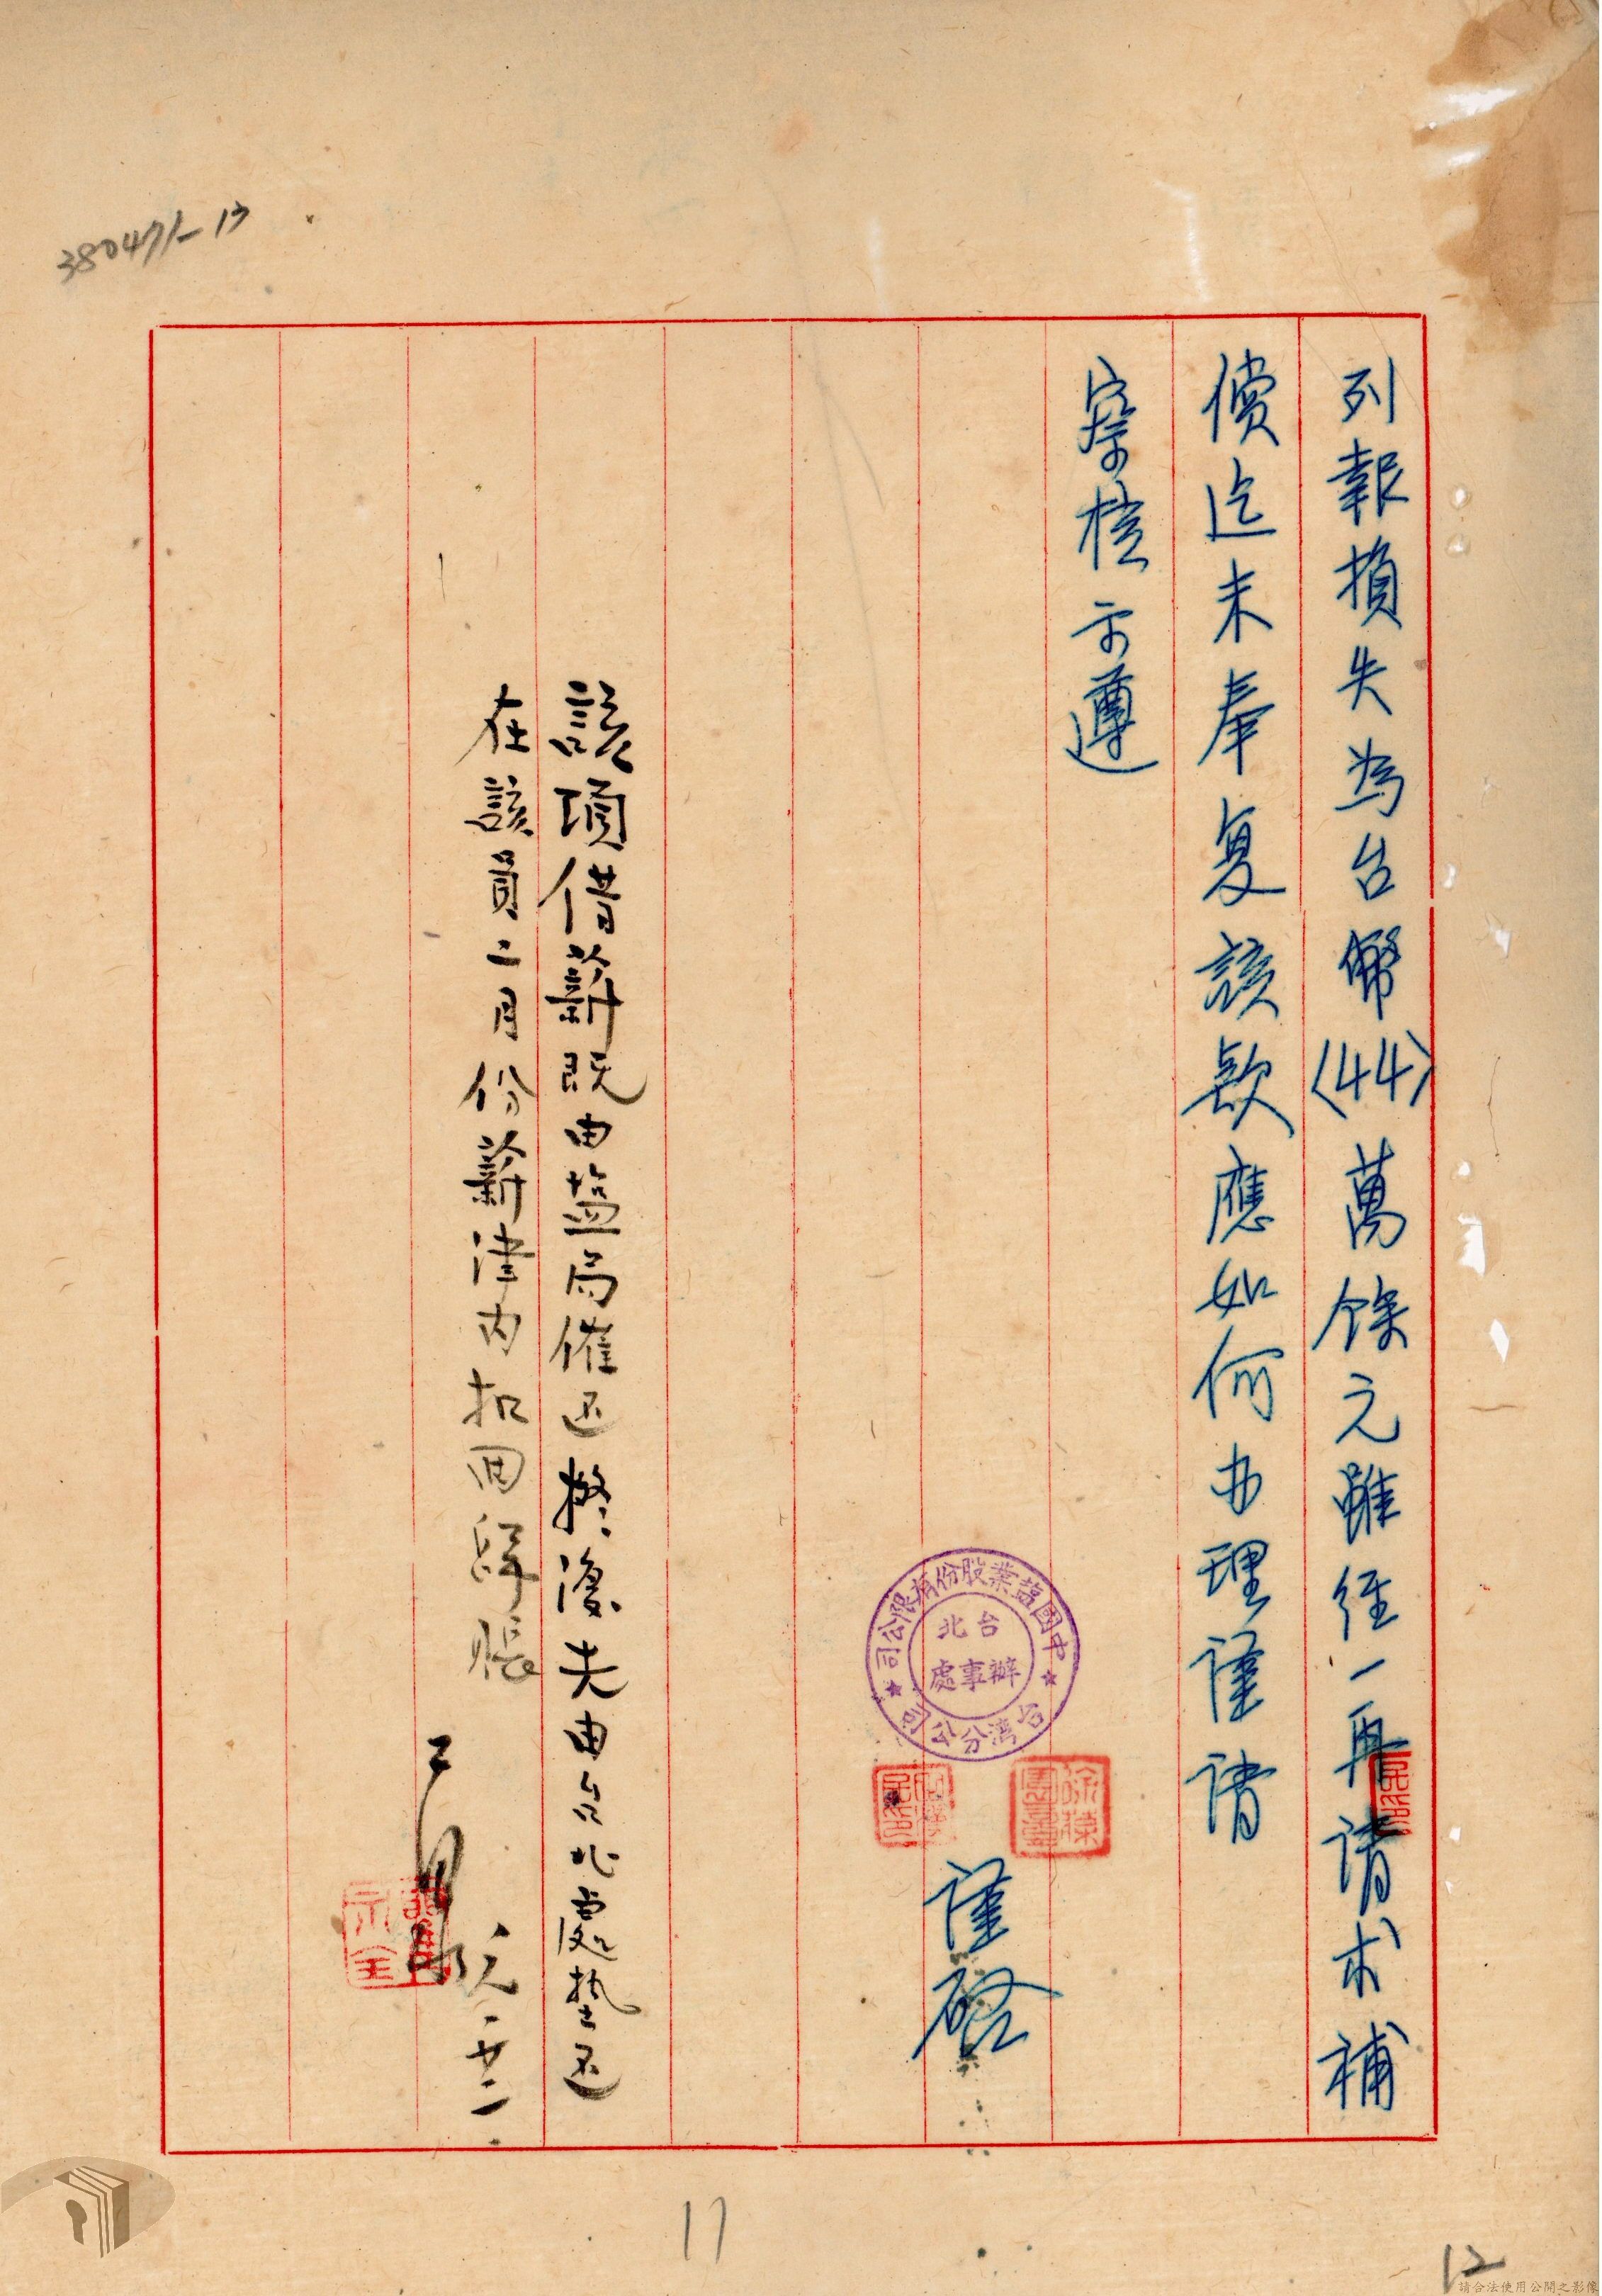 列報損失為台幣〈44〉萬餘元雖經一再請求補
償迄未奉复該款應如何办理謹請
察核示遵
中國鹽業股份有限公司
台灣分公司
台北
辦事處
謹啓
該項借薪既由盐局催还擬復先由台北處墊还
在該員二月份薪津內扣回歸賬
元·廿二
380471-17
17
12
請合法使用公開之影像